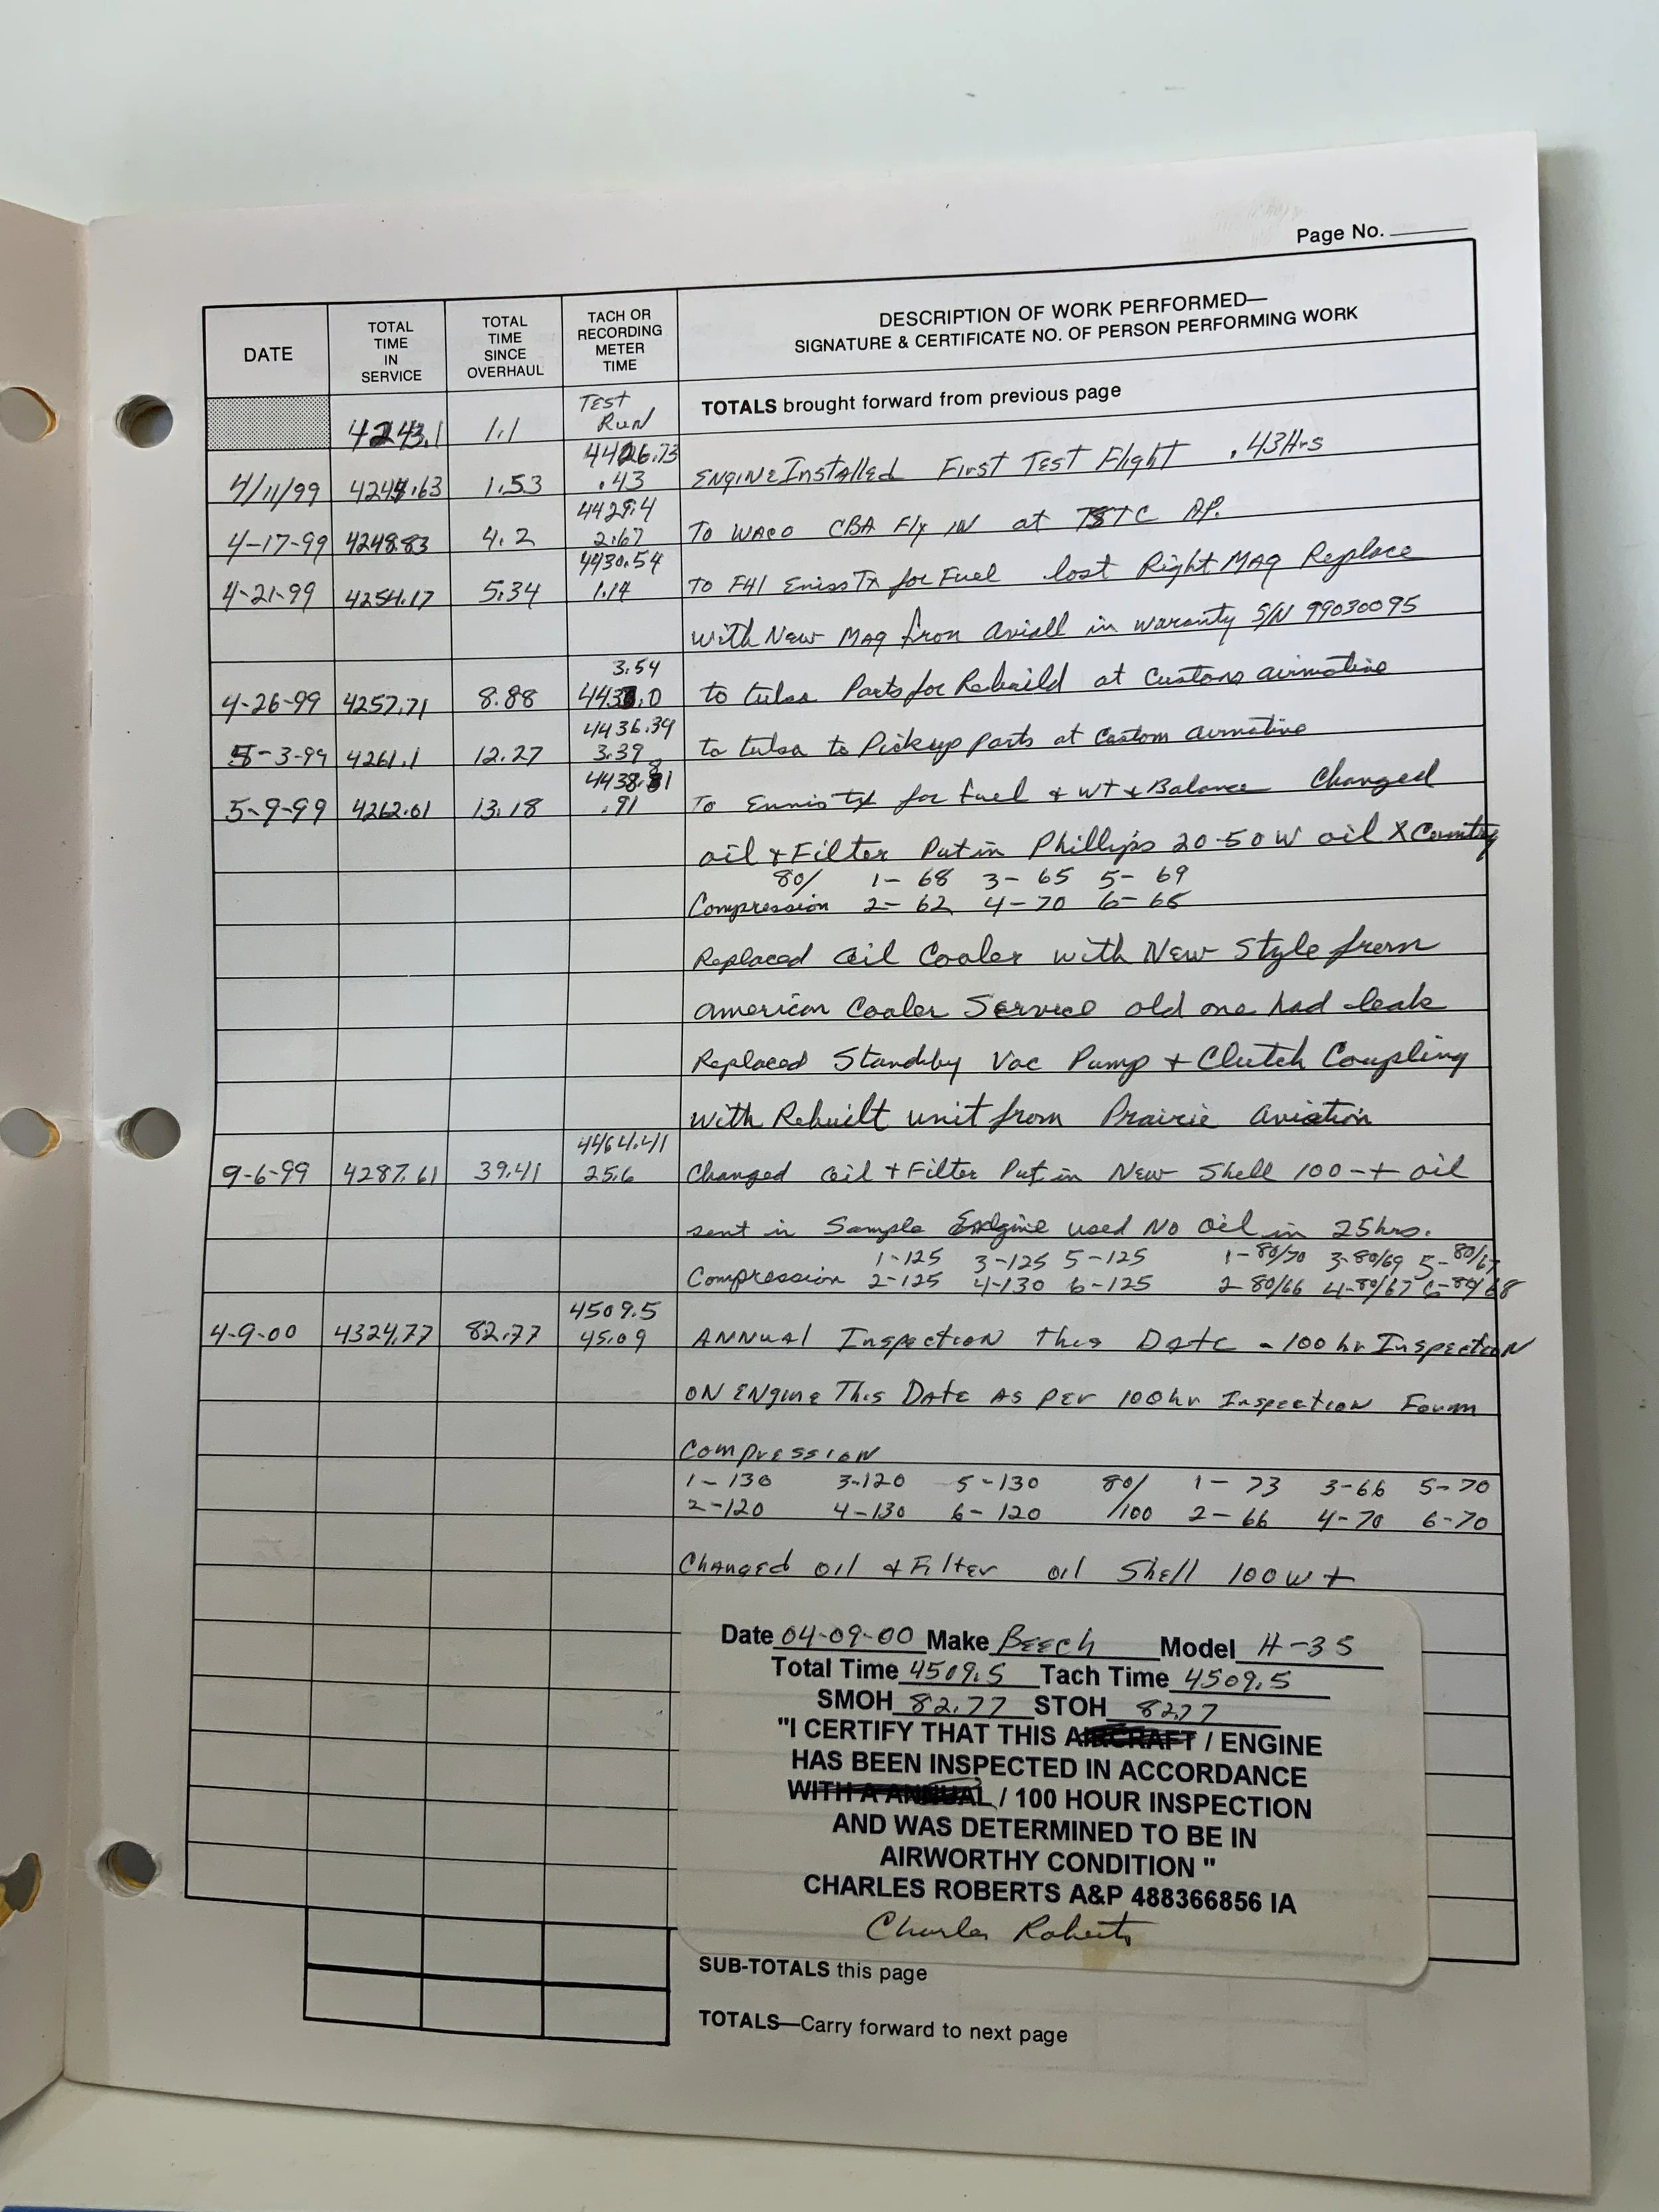 Page No.
DATE
TOTAL TIME IN SERVICE
TOTAL TIME SINCE OVERHAUL
TACH OR RECORDING METER TIME
DESCRIPTION OF WORK PERFORMED—
SIGNATURE & CERTIFICATE NO. OF PERSON PERFORMING WORK
4243.1 1.1 TEST RUN TOTALS brought forward from previous page
4426.73
4/11/99 4244.63 1.53 .43 ENGINE Installed First Test Flight .43Hrs
4429.4
4-17-99 4248.83 4.2 2.67 To WACO CBA Fly IN at TSTC AP.
4430.54
4-21-99 4254.17 5.34 1.14 To F41 Eniss Tx for Fuel lost Right Mag Replace
with New Mag from Aviall in waranty S/N 99030095
3.54
4-26-99 4257.71 8.88 4433.0 to tulsa Parts for Rebuild at Customs airmotive
4436.39
5-3-99 4261.1 12.27 3.39 to tulsa to Pickup parts at Custom airmotive
4438.81
5-9-99 4262.01 13.18 .91 To Ennis tx for fuel & wt & Balance Changed
oil & Filter Put in Phillips 20-50 W oil X Country
80/ 1- 68 3- 65 5- 69
Compression 2- 62 4-70 6-65
Replaced Oil Cooler with New Style from
American Cooler Service old one had leak
Replaced Standby Vac Pump + Clutch Coupling
with Rebuilt unit from Prairie Aviation
4464.41
9-6-99 4287.61 39.41 25.6 Changed Oil + Filter Put in New Shell 100-+ oil
sent in Sample Engine used No Oil in 25hrs.
1-125 3-125 5-125 1-80/70 3-80/69 5-80/67
Compression 2-125 4-130 6-125 2-80/66 4-80/67 6-80/68
4509.5
4-9-00 4324.77 82.77 45.09 ANNUAL Inspection This Date - 100 hr Inspection
ON ENgine This DATE AS PER 100hr Inspection Foum
Compression
1-130 3-120 5-130 80/ 1- 73 3-66 5-70
2-120 4-130 6-120 /100 2-66 4-70 6-70
Changed oil & Filter oil Shell 100W+
Date 04-09-00 Make BEECh Model H-35
Total Time 4509.5 Tach Time 4509.5
SMOH 82.77 STOH 82.77
"I CERTIFY THAT THIS AIRCRAFT / ENGINE
HAS BEEN INSPECTED IN ACCORDANCE
WITH A ANNUAL / 100 HOUR INSPECTION
AND WAS DETERMINED TO BE IN
AIRWORTHY CONDITION "
CHARLES ROBERTS A&P 488366856 IA
Charles Roberts
SUB-TOTALS this page
TOTALS—Carry forward to next page